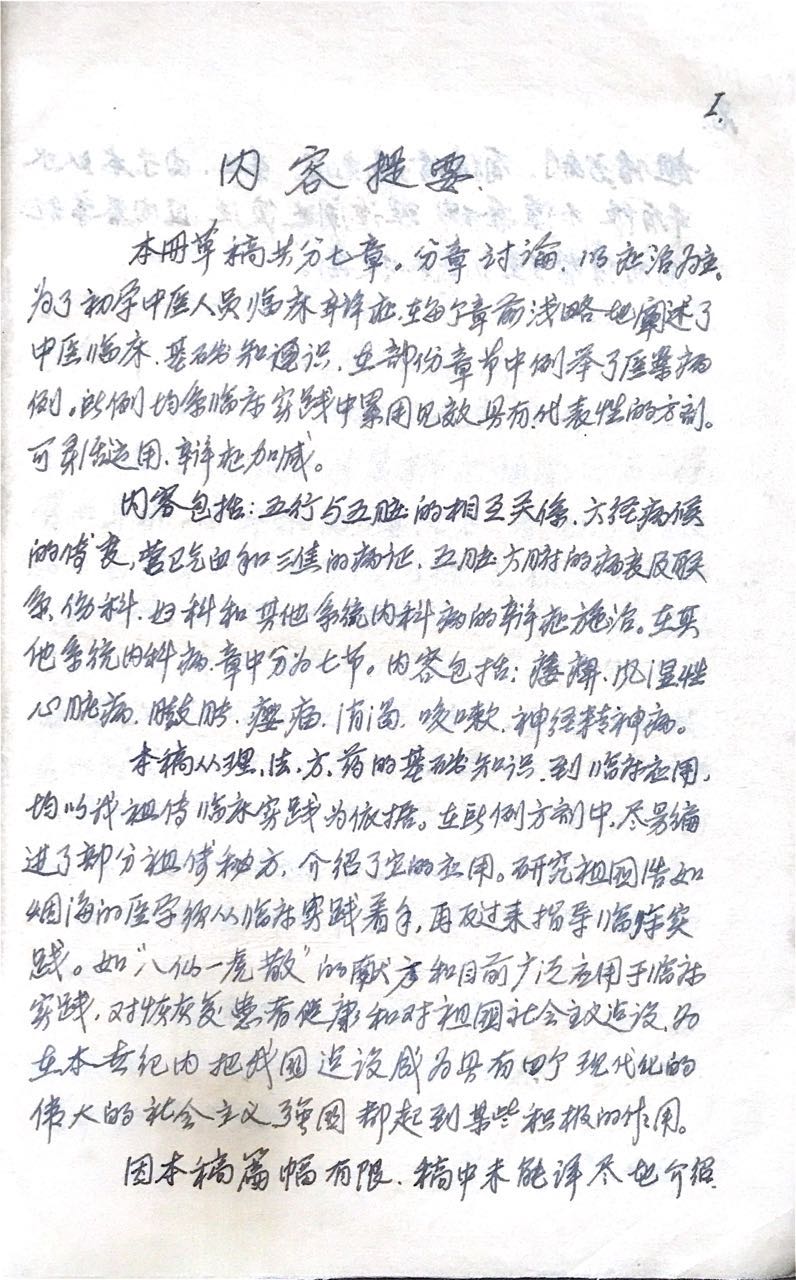 I.
内容提要.
本册草稿共分七章。分章讨论、以症治为主。
为了初学中医人员临床辩证,在每个章前浅略地阐述了
中医临床、基础知通识、在部份章节中例举了医案病
例。此例均系临床实践中累用见效具有代表性的方剂。
可灵活运用、辩症加减。
内容包括:五行与五脏的相互关係、六经病候
的传变,营卫气血和三焦的病证、五脏六腑的病变及联
系、伤科、妇科和其他系统内科病的辩症施治。在其
他系统内科病、章中分为七节。内容包括:痿痹、风湿性
心脏病、臌胀、瘿瘤、消渴、咳嗽、神经精神病。
本稿从理、法、方、药的基础知识、到临床应用,
均以我祖传临床实践为依据。在此例方剂中、尽另编
进了部分祖传秘方、介绍了它的应用。研究祖国浩如
烟海的医学须从临床实践着手,再反过来指导临床实
践。如"八仙一虎散"的献方和目前广泛应用于临床
实践,对恢复患者健康和对祖国社会主义建设、为
在本世纪内把我国建设成为具有四个现代化的
伟大的社会主义强国都起到某些积极的作用。
因本稿篇幅有限、稿中未能详尽地介绍